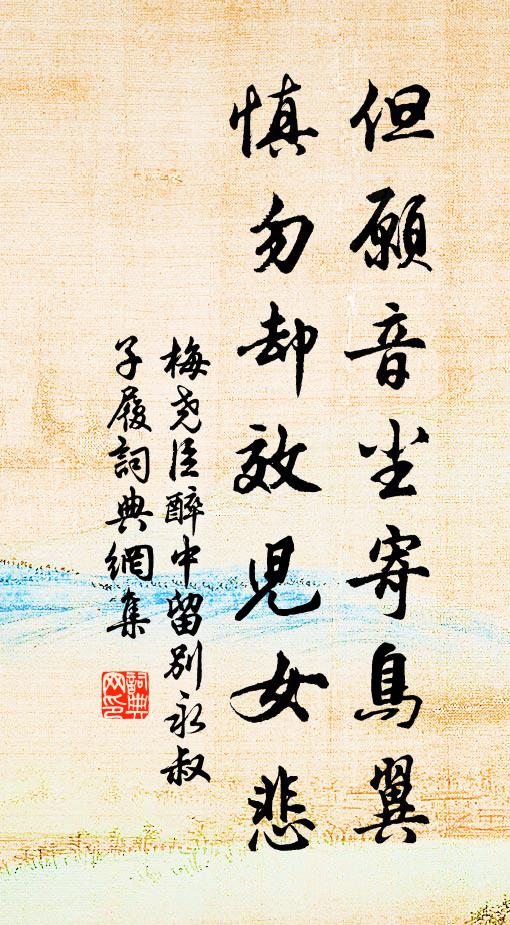 但願音尘寄鳥翼
慎勿却效児女悲
梅尧臣醉中留别永叔
子履詞典網集
詞典
网印